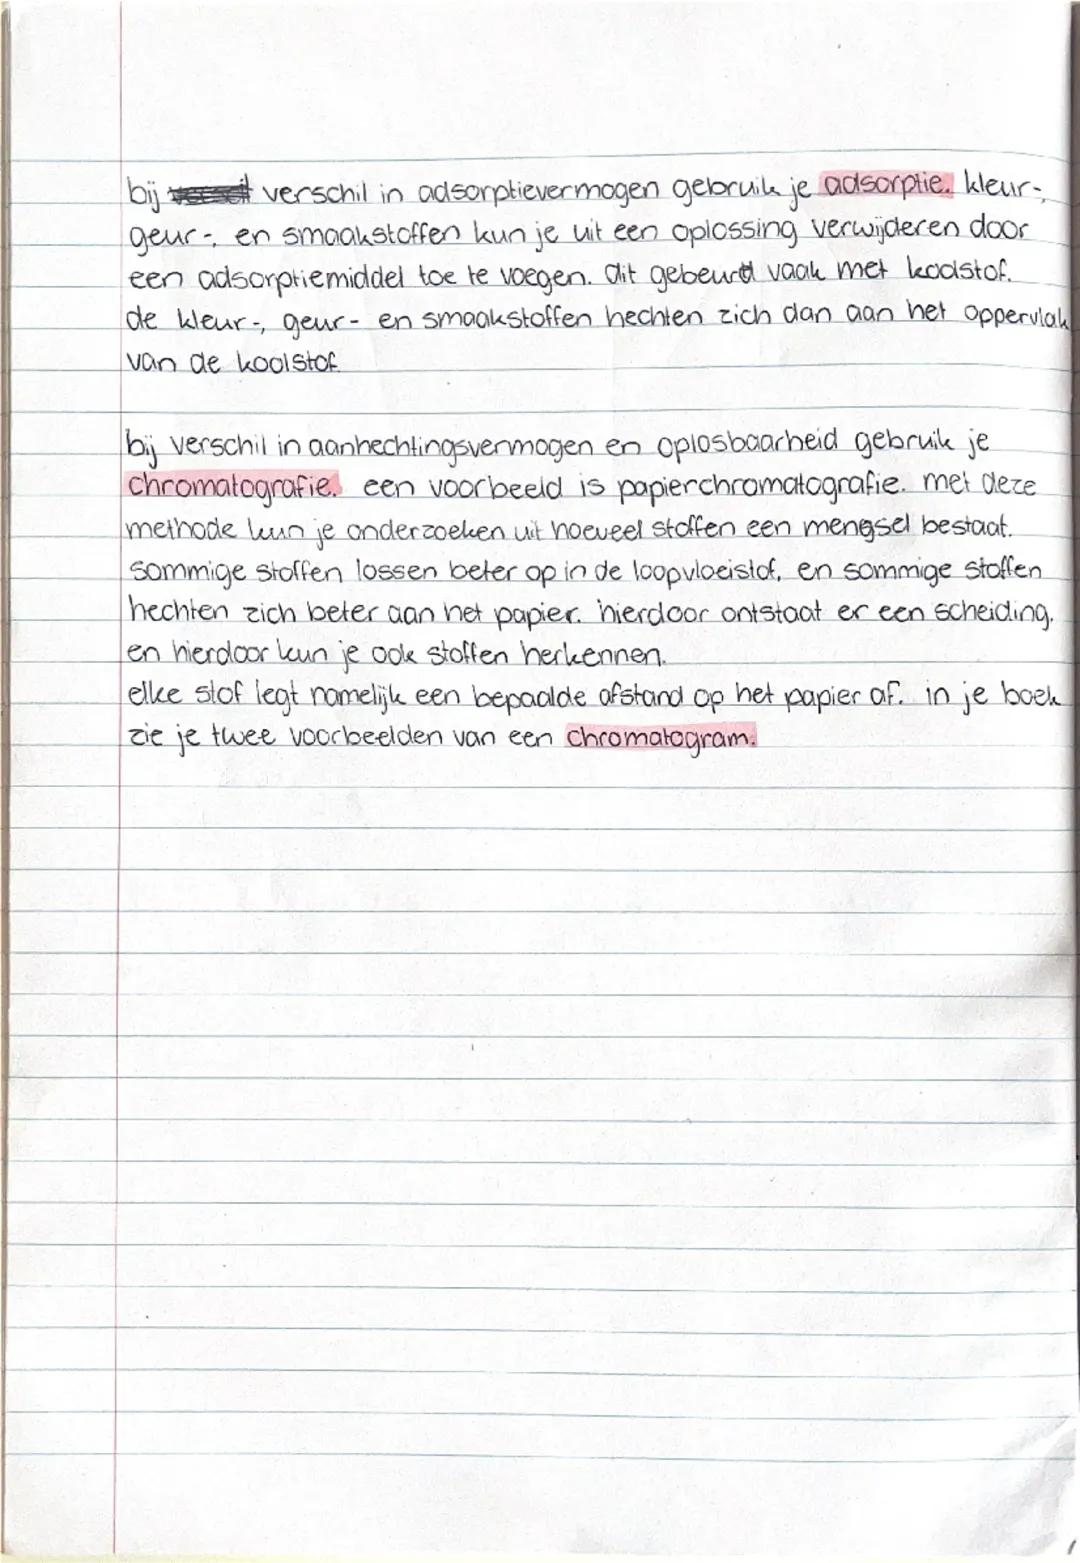 bij verschil in adsorptievermogen gebruik je adsorptie. kleur-,
geur-, en smaakstoffen kun je uit een oplossing verwijderen door
een adsorptiemiddel toe te voegen. dit gebeurd vaak met koolstof.
de kleur-, geur- en smaakstoffen hechten zich dan aan het oppervlak
van de koolstof
bij verschil in aanhechtingsvermogen en oplosbaarheid gebruik je
chromatografie. een voorbeeld is papierchromatografie. met deze
methode kun je onderzoeken uit hoeveel stoffen een mengsel bestaat.
sommige stoffen lossen beter op in de loopvloeistof, en sommige stoffen
hechten zich beter aan het papier. hierdoor ontstaat er een scheiding,
en hierdoor kun je ook stoffen herkennen.
elke stof legt namelijk een bepaalde afstand op het papier af. in je boek
zie je twee voorbeelden van een chromatogram.